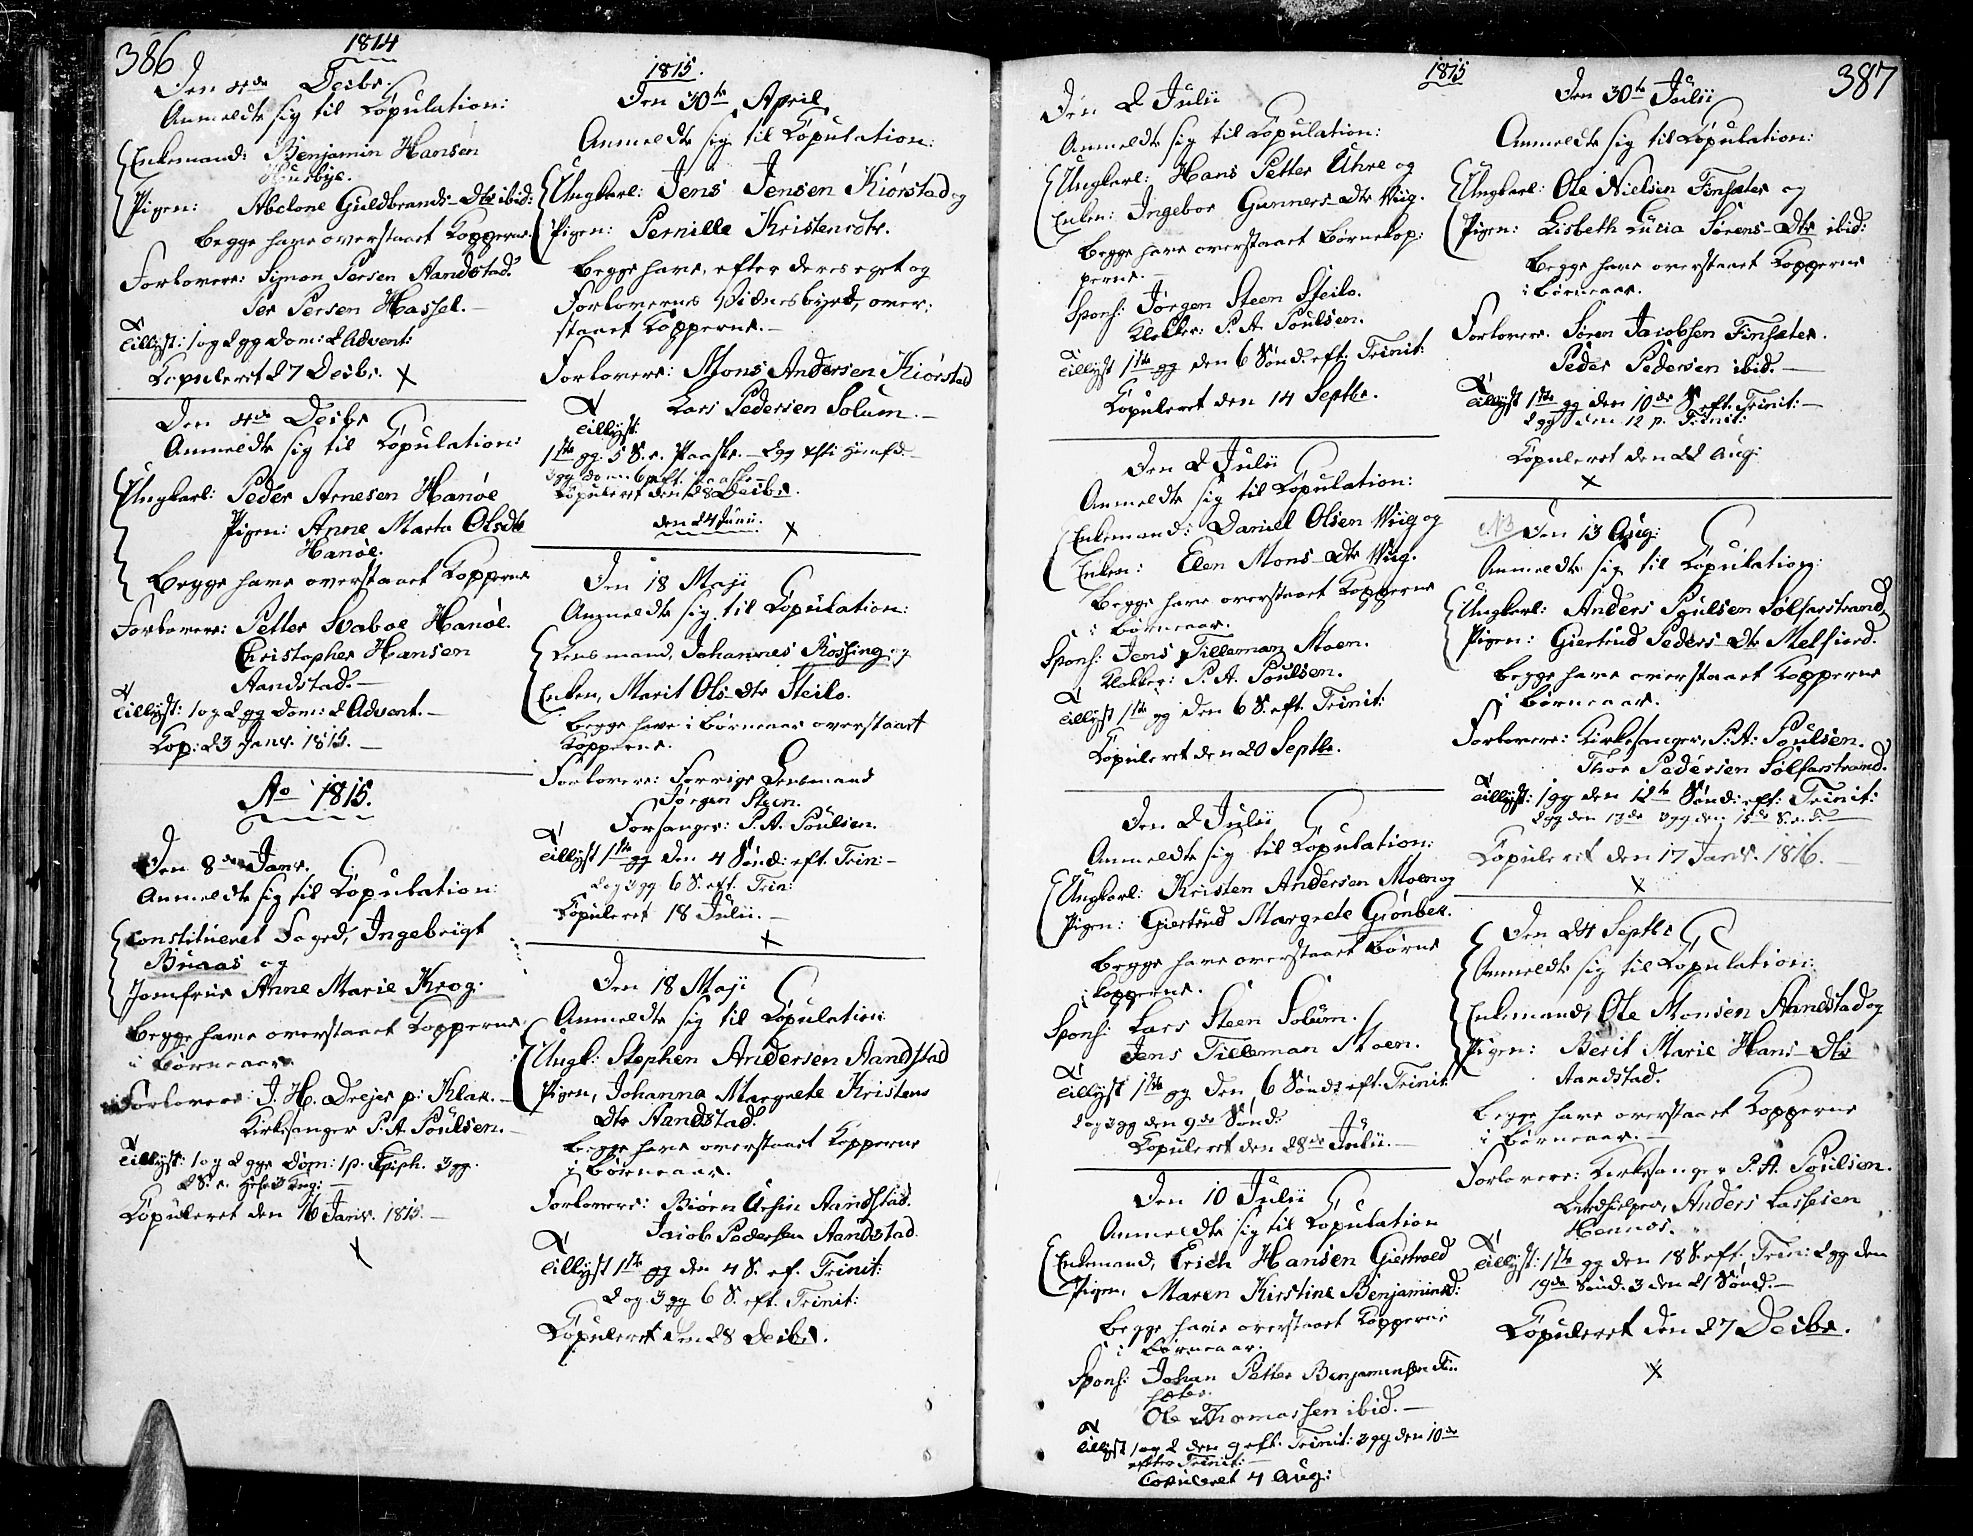 386
1814
Den 4de Decbr.
Anmeldte sig til Copulation:
Enkemand: Benjamin Hansen
Huusbye.
Pigen: Abelone Guldbrands-Dtr ibid:
begge have overstaaet Kopperne.
Forlovere: Simon Persen Aandstad.
Per Persen Hassel.
Tillyst: 1 og 2 gg Dom: 2 Advent:
Copuleret 27 Decbr.
Den 4de Decbr
Anmeldte sig til Copulation:
Ungkarl: Peder Arnesen Hanøe
Pigen: Anne Marta Olsdtr
Hanøe.
Begge have overstaaet Kopperne
Forlovere: Petter Svaboe Hanøe.
Christopher Hansen
Aandstad.
Tillyst: 1 og 2 gg Dom: 2 Advent.
Kop: 23 Janr. 1815.
Ao 1815.
Den 8de Janr.
Anmeldte sig til Copulation:
Constitueret Foged, Ingebrigt
Buaas og
Jomfrue Anne Marie Krog.
begge have overstaaet Kopperne
i børneaar
Forlovere J. H. Drejer p: Klak.
Kirkesanger P. A. Poulsen.
Tillyst: 1 og 2 gge Dom: 1 p. Epiph. 3 gg.
2 S. e. H: 3 Kng:
Copuleret den 16 Janr. 1815.
1815.
Den 30te April
Anmeldte sig til Copulation:
Ungkarl: Jens Jensen Kiørstad og
Pigen: Pernille Kristensdtr.
begge have, efter deres eget og
Forlovernes Vidnesbyrd, over:
staaet Kopperne.
Forlovere: Mons Andersen Kiørstad
Lars Pedersen Solum.
Tillyst:
1ste gg. 5 S. e. Paaske. 2 gg Chr: Himfd.
3 gg Dom. 6 eft. Paaske
Copuleret den 28 Decbr.
den 24 Junii.
Den 18 Maji
Anmeldte sig til Copulation:
Lensmand, Johannes Rossing og
Enken, Marit Ols-Dtr Steilo.
begge have i børneaar overstaaet
Kopperne.
Forlovere: Forrige Lensmand
Jørgen Steen.
Forsanger: P. A. Poulsen.
Tillyst 1ste gg den 4 Sønd: eft. Trin:
2 og 3 gg 6 S. eft. Trin:
Copuleret 18 Julii.
Den 18 Maji
Anmeldte sig til Copulation
Ungk: Stephen Andersen Aandstad
Pigen, Johanna Margrete Kristens
Dtr Aandstad.
begge have overstaaet Kopperne
i børneaar.
Forlovere: Biørn Ursin Aandstad.
Jacob Pedersen Aandstad.
Tillyst 1ste gg den 4 S. ef. Trinit:
2 og 3 gg 6 S. eft. Trinit:
Copuleret den 28 Decbr.
1815
387
Den 2 Julii
Anmeldte sig til Copulation:
Ungkarl: Hans Petter Uhre og
Enken: Ingebor Gunners-Dtr Wiig.
begge have overstaaet børnekop:
perne.
Spons: Jørgen Steen Steilo.
Klokker: P. A. Poulsen.
Tillyst 1ste gg den 6 Sønd: eft. Trinit:
Copuleret den 14 Septbr.
Den 2 Julii
Anmeldte sig til Copulation:
Enkemand: Daniel Olsen Wiig og
Enken: Elen Mons-Dtr Wiig.
begge have overstaaet Kopperne
i børneaar.
Spons: Jens Tilleman Moen.
Klokker: P. A. Poulsen.
Tillyst 1ste gg den 6 S. eft. Trinit:
Copuleret den 20 Septbr.
Den 2 Julii
Anmeldte sig til Copulation:
Ungkarl: Kristen Andersen Moen og
Pigen: Giertrud Margrete Grønbek.
begge have overstaaet børne
kopperne.
Spons: Lars Steen Solum.
Jens Tilleman Moen.
Tillyst 1ste gg den 6 Sønd: eft. Trinit:
2 og 3 gg den 9de Sønd:
Copuleret den 28de Julii.
Den 10 Julii
Anmeldte sig til Copulation
Enkemand, Erich Hansen Giestvold
Pigen, Maren Kirstine Benjaminsd:
begge have overstaaet Kopperne
i børneaar.
Spons: Johan Petter Benjaminsen Fin
sæter.
Ole Thomassen ibid.
Tillyst 1 og 2 den 9 eft. Trinit: 3 gg den 10de
efter Trinit:
Copuleret 4 Aug:
Den 30te Julii
Anmeldte sig til Copulation:
Ungkarl: Ole Nielsen Finsæter og
Pigen: Lisbeth Lucia Sørens-Dtr ibid:
begge have overstaaet Kopperne
i børneaar.
Forlovere: Søren Jacobsen Finsæter.
Peder Pedersen ibid.
Tillyst 1ste gg den 10de S. eft. Trinit:
2 gg den 12 p. Trinit:
Copuleret den 22 Aug:
NB Den 13 Aug:
Anmeldte sig til Copulation:
Ungkarl: Anders Poulsen Sølfarstrand
Pigen: Giertrud Peders-Dtr Melfiord.
begge have overstaaet Kopperne
i børneaar.
Forlovere: Kirkesanger, P: A: Poulsen.
Thor Pedersen Sølfarstrand.
Tillyst: 1 gg den 12te Sønd: eft: Trinit:
2 gg den 13de 3 gg den 15de S. e. T
Copuleret den 17 Janr. 1816.
Den 24 Septbr
Anmeldte sig til Copulation:
Enkemand, Ole Monsen Aandstad og
Pigen: Berit Marie Hans-Dtr
Aandstad.
begge have overstaaet Kopperne
i børneaar.
Forlovere: Kirkesanger P. A. Poulsen.
Anders Lassesen
Hennes.
Tillyst: 1ste gg den 18 S. eft. Trin: 2 gg den
19de Sønd. 3 den 21 Sønd.
Copuleret den 27 Decbr.